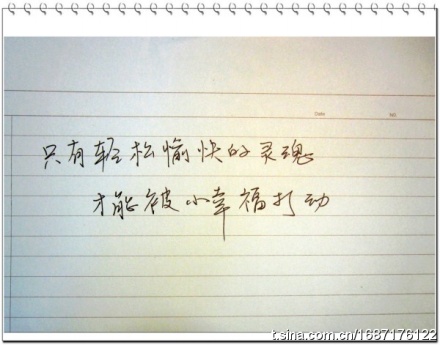 Date
NO.
只有轻松愉快的灵魂
才能被小幸福打动
t.sina.com.cn/1687176122